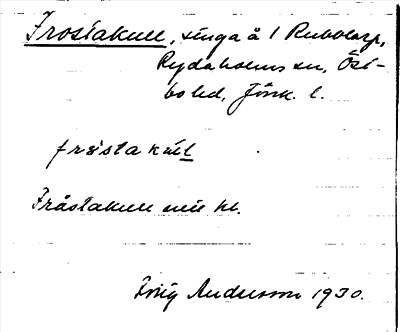 Frostakull, singa å 1 Rubborp,
Rydaholms sn, Öst-
bo hd, Jönk. l.
fråstakul
Fråstakull nu hl.
Andersson 1930.